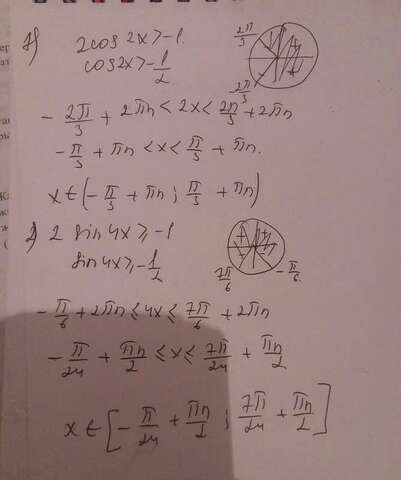 1) 2cos2x>-1.
cos2x>-1/2
2π/3
-2π/3
-2π/3 + 2πn < 2x < 2π/3 + 2πn
-π/3 + πn < x < π/3 + πn.
x ∈ (-π/3 + πn ; π/3 + πn)
2) 2 sin4x ≥ -1
sin4x ≥ -1/2
7π/6
-π/6
-π/6 + 2πn ≤ 4x ≤ 7π/6 + 2πn
-π/24 + πn/2 ≤ x ≤ 7π/24 + πn/2
x ∈ [-π/24 + πn/2 ; 7π/24 + πn/2]